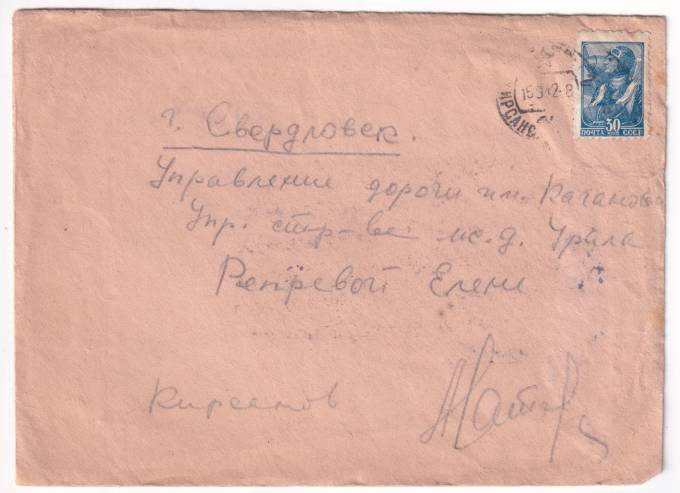 15 9 42-8
ИРСАНО
30
ПОЧТА СССР
г. Свердловск.
Управление дороги им. Каганови
Упр. стр-ве ж.д. Урала
Репревой Елене
Кирсанов